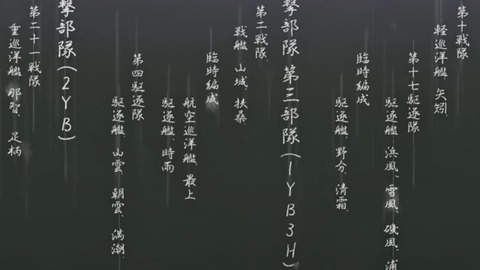 第十戦隊
軽巡洋艦 矢矧
第十七駆逐隊
駆逐艦 浜風、雪風、磯風、浦
臨時編成
駆逐艦 野分、清霜、
撃部隊 第三部隊(1YB3H)
第二戦隊、
戦艦 山城、扶桑
臨時編成
航空巡洋艦 最上
駆逐艦、時雨
第四駆逐隊
駆逐艦 山雲、朝雲、満潮、
撃部隊(2YB)
第二十一戦隊
重巡洋艦 那智、足柄